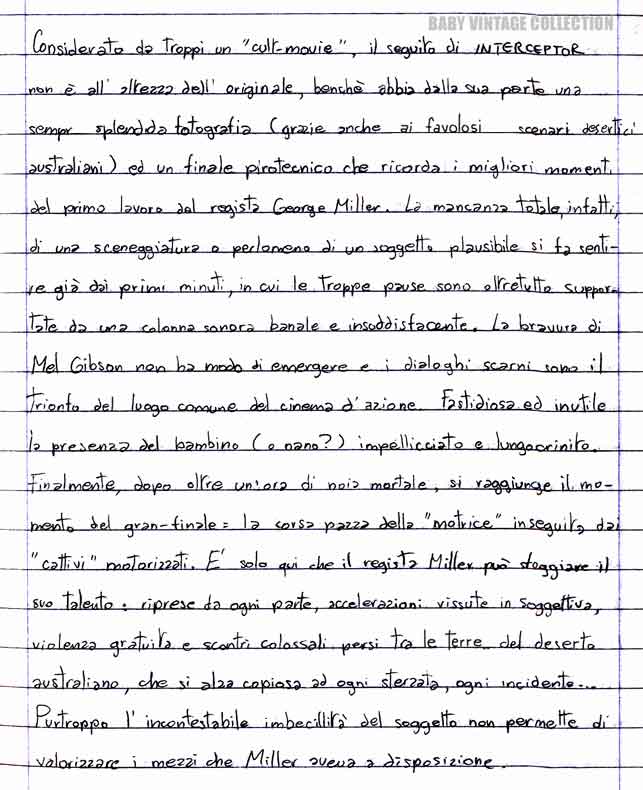 BABY VINTAGE COLLECTION
Considerato da troppi un "cult-movie", il seguito di INTERCEPTOR
non è all' altezza dell' originale, benchè abbia dalla sua parte una
sempr splendida fotografia (grazie anche ai favolosi scenari desertici
australiani) ed un finale pirotecnico che ricorda i migliori momenti
del primo lavoro del regista George Miller. La mancanza totale, infatti,
di una sceneggiatura o perlomeno di un soggetto plausibile si fa senti-
re già dai primi minuti, in cui le troppe pause sono oltretutto suppor-
tate da una colonna sonora banale e insoddisfacente. La bravura di
Mel Gibson non ha modo di emergere e i dialoghi scarni sono il
trionfo del luogo comune del cinema d'azione. Fastidiosa ed inutile
la presenza del bambino (o nano?) impellicciato e lungocrinito.
Finalmente, dopo oltre un'ora di noia mortale, si raggiunge il mo-
mento del gran-finale: la corsa pazza della "motrice" inseguita dai
"cattivi" motorizzati. E' solo qui che il regista Miller può sfoggiare il
suo talento: riprese da ogni parte, accelerazioni vissute in soggettiva,
violenza gratuita e scontri colossali persi tra le terre del deserto
australiano, che si alza copiosa ad ogni sterzata, ogni incidente...
Purtroppo l' incontestabile imbecillità del soggetto non permette di
valorizzare i mezzi che Miller aveva a disposizione.